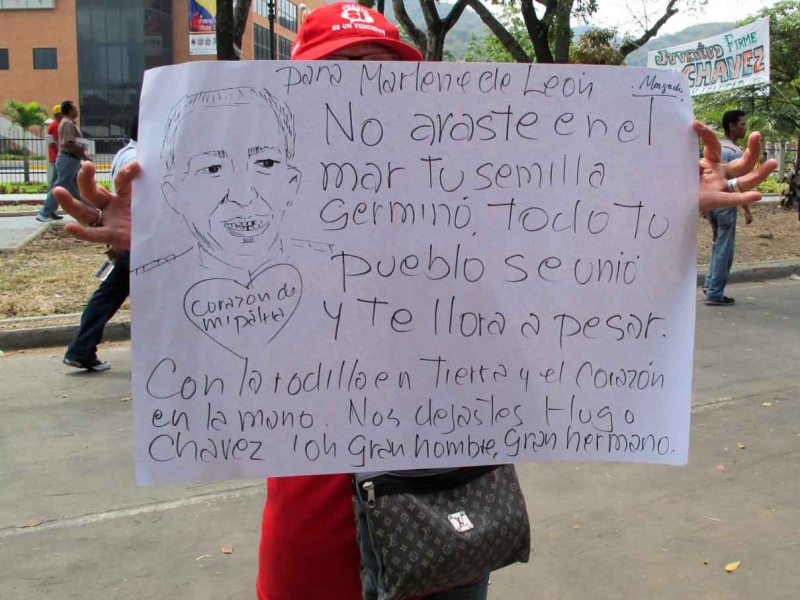 ES UN VENCEDOR
JUVENTUD FIRME
CHAVEZ
para Marlene de León
No araste en el
mar tu semilla
germinó, todo tu
pueblo se unió
y te llora a pesar.
Corazón de
mi patria
Con la rodilla en tierra y el corazón
en la mano. Nos dejastes Hugo
Chavez ¡oh gran hombre, gran hermano.